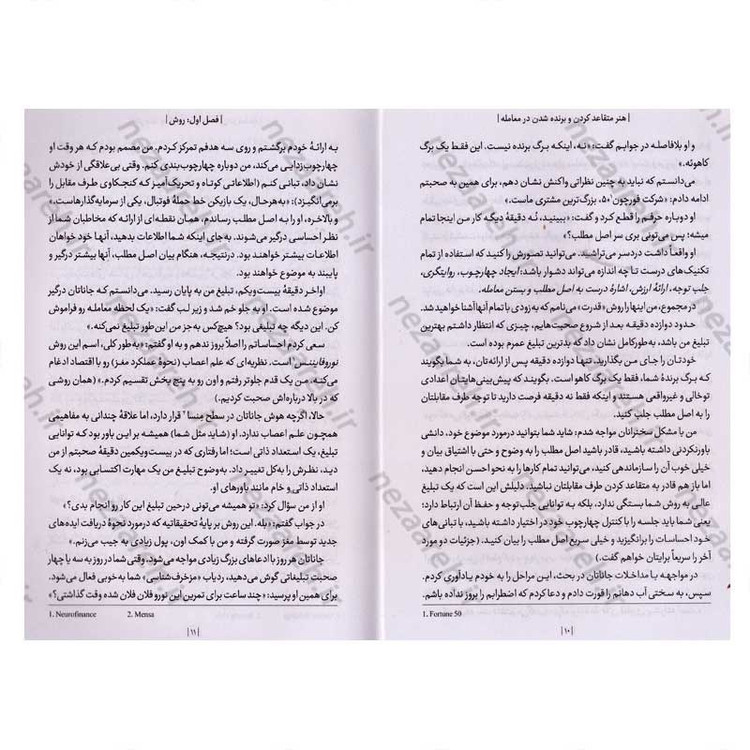 | هنر متقاعد کردن و برنده شدن در معامله |
و او بلافاصله در جوابم گفت: «نه، اینکه برگ برنده نیست. این فقط یک برگ
کاهوئه.»
می‌دانستم که نباید به چنین نظراتی واکنش نشان دهم، برای همین به صحبتم
ادامه دادم: «شرکت فورچون ۵۰۱، بزرگ‌ترین مشتری ماست.»
او دوباره حرفم را قطع کرد و گفت: «ببینید، نُه دقیقهٔ دیگه کار من اینجا تمام
میشه؛ پس می‌تونی بری سر اصل مطلب؟»
او واقعاً داشت دردسر می‌تراشید. می‌توانید تصورش را کنید که استفاده از تمام
تکنیک‌های درست تا چه اندازه می‌تواند دشوار باشد: ایجاد چهارچوب، روایتگری،
جلب توجه، ارائهٔ ارزش، اشارهٔ درست به اصل مطلب و بستن معامله.
در مجموع، من این‌ها را روش «قدرت» می‌نامم که به‌زودی با تمام آنها آشنا خواهید شد.
حدود دوازده دقیقه بعد از شروع صحبت‌هایم، چیزی که انتظار داشتم بهترین
تبلیغ من باشد، به‌طور کامل نشان داد که بدترین تبلیغ عمرم بوده است.
خودتان را جای من بگذارید، تنها دوازده دقیقه پس از ارائه‌تان، به شما بگویند
که برگ برندهٔ شما، فقط یک برگ کاهو است. بگویند که پیش‌بینی‌هایتان اعدادی
توخالی و غیرواقعی هستند و اینکه فقط نه دقیقه فرصت دارید تا توجه طرف مقابلتان
را به اصل مطلب جلب کنید.
من با مشکل سخنرانان مواجه شدم: شاید شما بتوانید درمورد موضوع خود، دانشی
باورنکردنی داشته باشید، قادر باشید اصل مطلب را به وضوح و حتی با اشتیاق بیان و
خیلی خوب آن را سازماندهی کنید، می‌توانید تمام کارها را به نحو احسن انجام دهید،
اما باز هم قادر به متقاعد کردن طرف مقابلتان نباشید. دلیلش این است که یک تبلیغ
عالی به روش شما بستگی ندارد، بلکه به توانایی جلب توجه و حفظ آن ارتباط دارد؛
یعنی شما باید جلسه را با کنترل چهارچوب خود در اختیار داشته باشید، با تبانی‌های
خود احساسات را برانگیزید و خیلی سریع اصل مطلب را بیان کنید. (جزئیات دو مورد
آخر را سریعاً برایتان خواهم گفت.)
در مواجهه با مداخلات جاناتان در بحث، این مراحل را به خودم یادآوری کردم.
سپس، به سختی آب دهانم را قورت دادم و دعا کردم که اضطرابم را بروز نداده باشم.
1. Fortune 50
| ۱۰ |
| فصل اول: روش |
به ارائهٔ خودم برگشتم و روی سه هدفم تمرکز کردم. من مصمم بودم که هر وقت او
چهارچوب‌زدایی می‌کند، من دوباره چهارچوب‌بندی کنم. وقتی بی‌علاقگی از خودش
نشان داد، تبانی کنم (اطلاعاتی کوتاه و تحریک‌آمیز که کنجکاوی طرف مقابل را
برمی‌انگیزد): «به‌هرحال، یک بازیکن خط حملهٔ فوتبال، یکی از سرمایه‌گذارهاست.»
و بالاخره، او را به اصل مطلب رساندم، همان نقطه‌ای از ارائه که مخاطبان شما از
نظر احساسی درگیر می‌شوند. به‌جای اینکه شما اطلاعات بدهید، آنها خود خواهان
اطلاعات بیشتر خواهند بود. درنتیجه، هنگام بیان اصل مطلب، آنها بیشتر درگیر و
پایبند به موضوع خواهند بود.
اواخر دقیقهٔ بیست‌ویکم، تبلیغ من به پایان رسید. می‌دانستم که جاناتان درگیر
موضوع شده است. او به جلو خم شد و زیر لب گفت: «یک لحظه معامله رو فراموش
کن. این دیگه چه تبلیغی بود؟ هیچ‌کس به‌جز من این‌طور تبلیغ نمی‌کنه.»
سعی کردم احساساتم را اصلاً بروز ندهم و به او گفتم: «به‌طور کلی، اسم این روش
نوروفایننس۱ است. نظریه‌ای که علم اعصاب (نحوهٔ عملکرد مغز) رو با اقتصاد ادغام
می‌کنه. من یک قدم جلوتر رفتم و اون رو به پنج بخش تقسیم کردم.» (همان روشی
که در بالا درباره‌اش صحبت کردیم.)
حالا، اگرچه هوش جاناتان در سطح منسا۲ قرار دارد، اما علاقهٔ چندانی به مفاهیمی
همچون علم اعصاب ندارد. او (شاید مثل شما) همیشه بر این باور بود که توانایی
تبلیغ، یک استعداد ذاتی است؛ اما رفتاری که در بیست‌ویکمین دقیقهٔ صحبتم از من
دید، نظرش را به‌کل تغییر داد. به‌وضوح تبلیغ من یک مهارت اکتسابی بود، نه یک
استعداد ذاتی و خام مانند باورهای او.
او از من سؤال کرد: «تو همیشه می‌تونی درحین تبلیغ این کار رو انجام بدی؟»
در جواب گفتم: «بله. این روش بر پایهٔ تحقیقاتیه که درمورد نحوهٔ دریافت ایده‌های
جدید توسط مغز صورت گرفته و من با کمک اون، پول زیادی به جیب می‌زنم.»
جاناتان هر روز با ادعاهای بزرگ زیادی مواجه می‌شود. وقتی شما در روز به سه یا چهار
صحبت تبلیغاتی گوش می‌دهید، ردیاب «مزخرف‌شناسی» شما به خوبی فعال می‌شود.
برای همین او پرسید: «چند ساعت برای تمرین این نورو فلان فلان شده وقت گذاشتی؟»
1. Neurofinance 2. Mensa
| ۱۱ |
nezaareh.ir